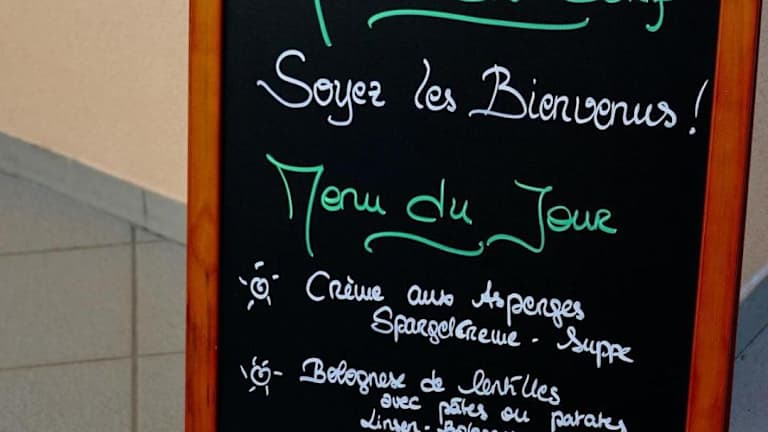 Soyez les Bienvenus !
Menu du Jour
Crème aux Asperges
Spargelcreme - Suppe
Bolognese de lentilles
avec pâtes ou patates
Linsen -